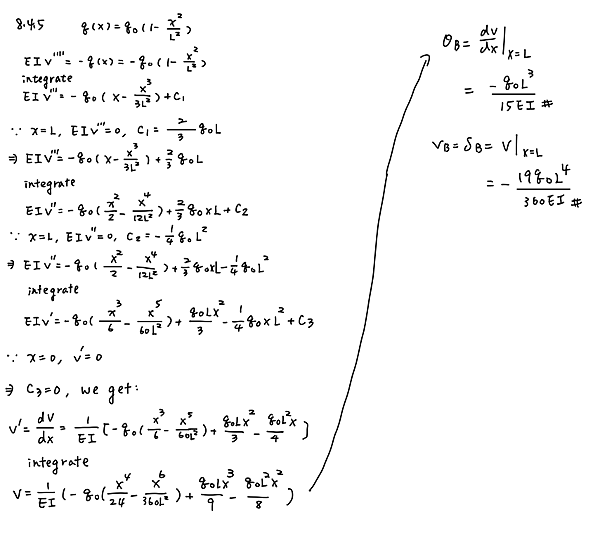 8.4.5 q(x) = q₀(1 - x²/L²)
EIv'''' = -q(x) = -q₀(1 - x²/L²)
integrate
EIv''' = -q₀(x - x³/3L²) + C₁
∵ x=L, EIv'''=0, C₁ = 2/3 q₀L
⇒ EIv''' = -q₀(x - x³/3L²) + 2/3 q₀L
integrate
EIv'' = -q₀(x²/2 - x⁴/12L²) + 2/3 q₀xL + C₂
∵ x=L, EIv''=0, C₂ = -1/4 q₀L²
⇒ EIv'' = -q₀(x²/2 - x⁴/12L²) + 2/3 q₀xL - 1/4 q₀L²
integrate
EIv' = -q₀(x³/6 - x⁵/60L²) + q₀Lx²/3 - 1/4 q₀xL² + C₃
∵ x=0, v'=0
⇒ C₃=0, we get:
v' = dv/dx = 1/EI [-q₀(x³/6 - x⁵/60L²) + q₀Lx²/3 - q₀L²x/4]
integrate
v = 1/EI (-q₀(x⁴/24 - x⁶/360L²) + q₀Lx³/9 - q₀L²x²/8)
θB = dv/dx |x=L
= -q₀L³/15EI #
vB = δB = v |x=L
= - 19q₀L⁴/360EI #